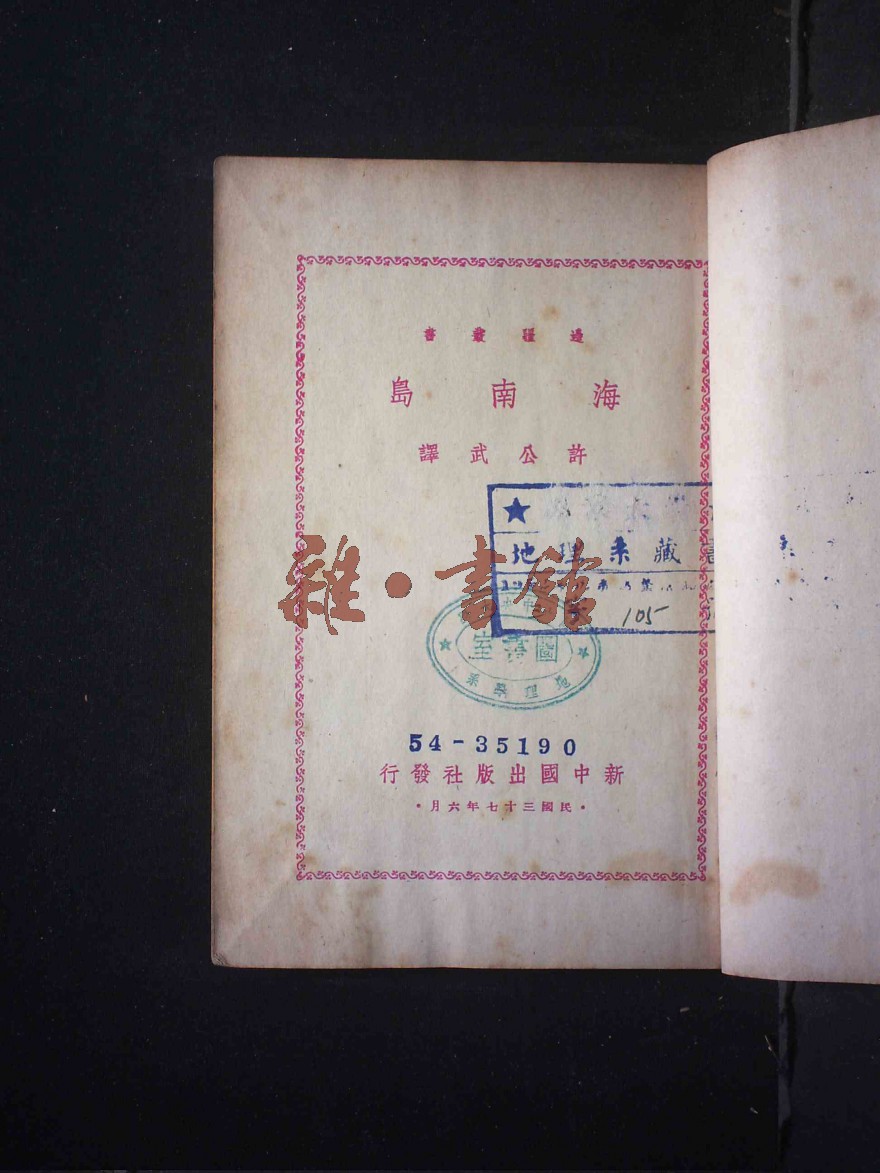 邊疆叢書
海南島
許公武譯
★
地理系藏書
105
雜·書館
圖書室
地理學系
54-35190
新中國出版社發行
·民國三十七年六月·